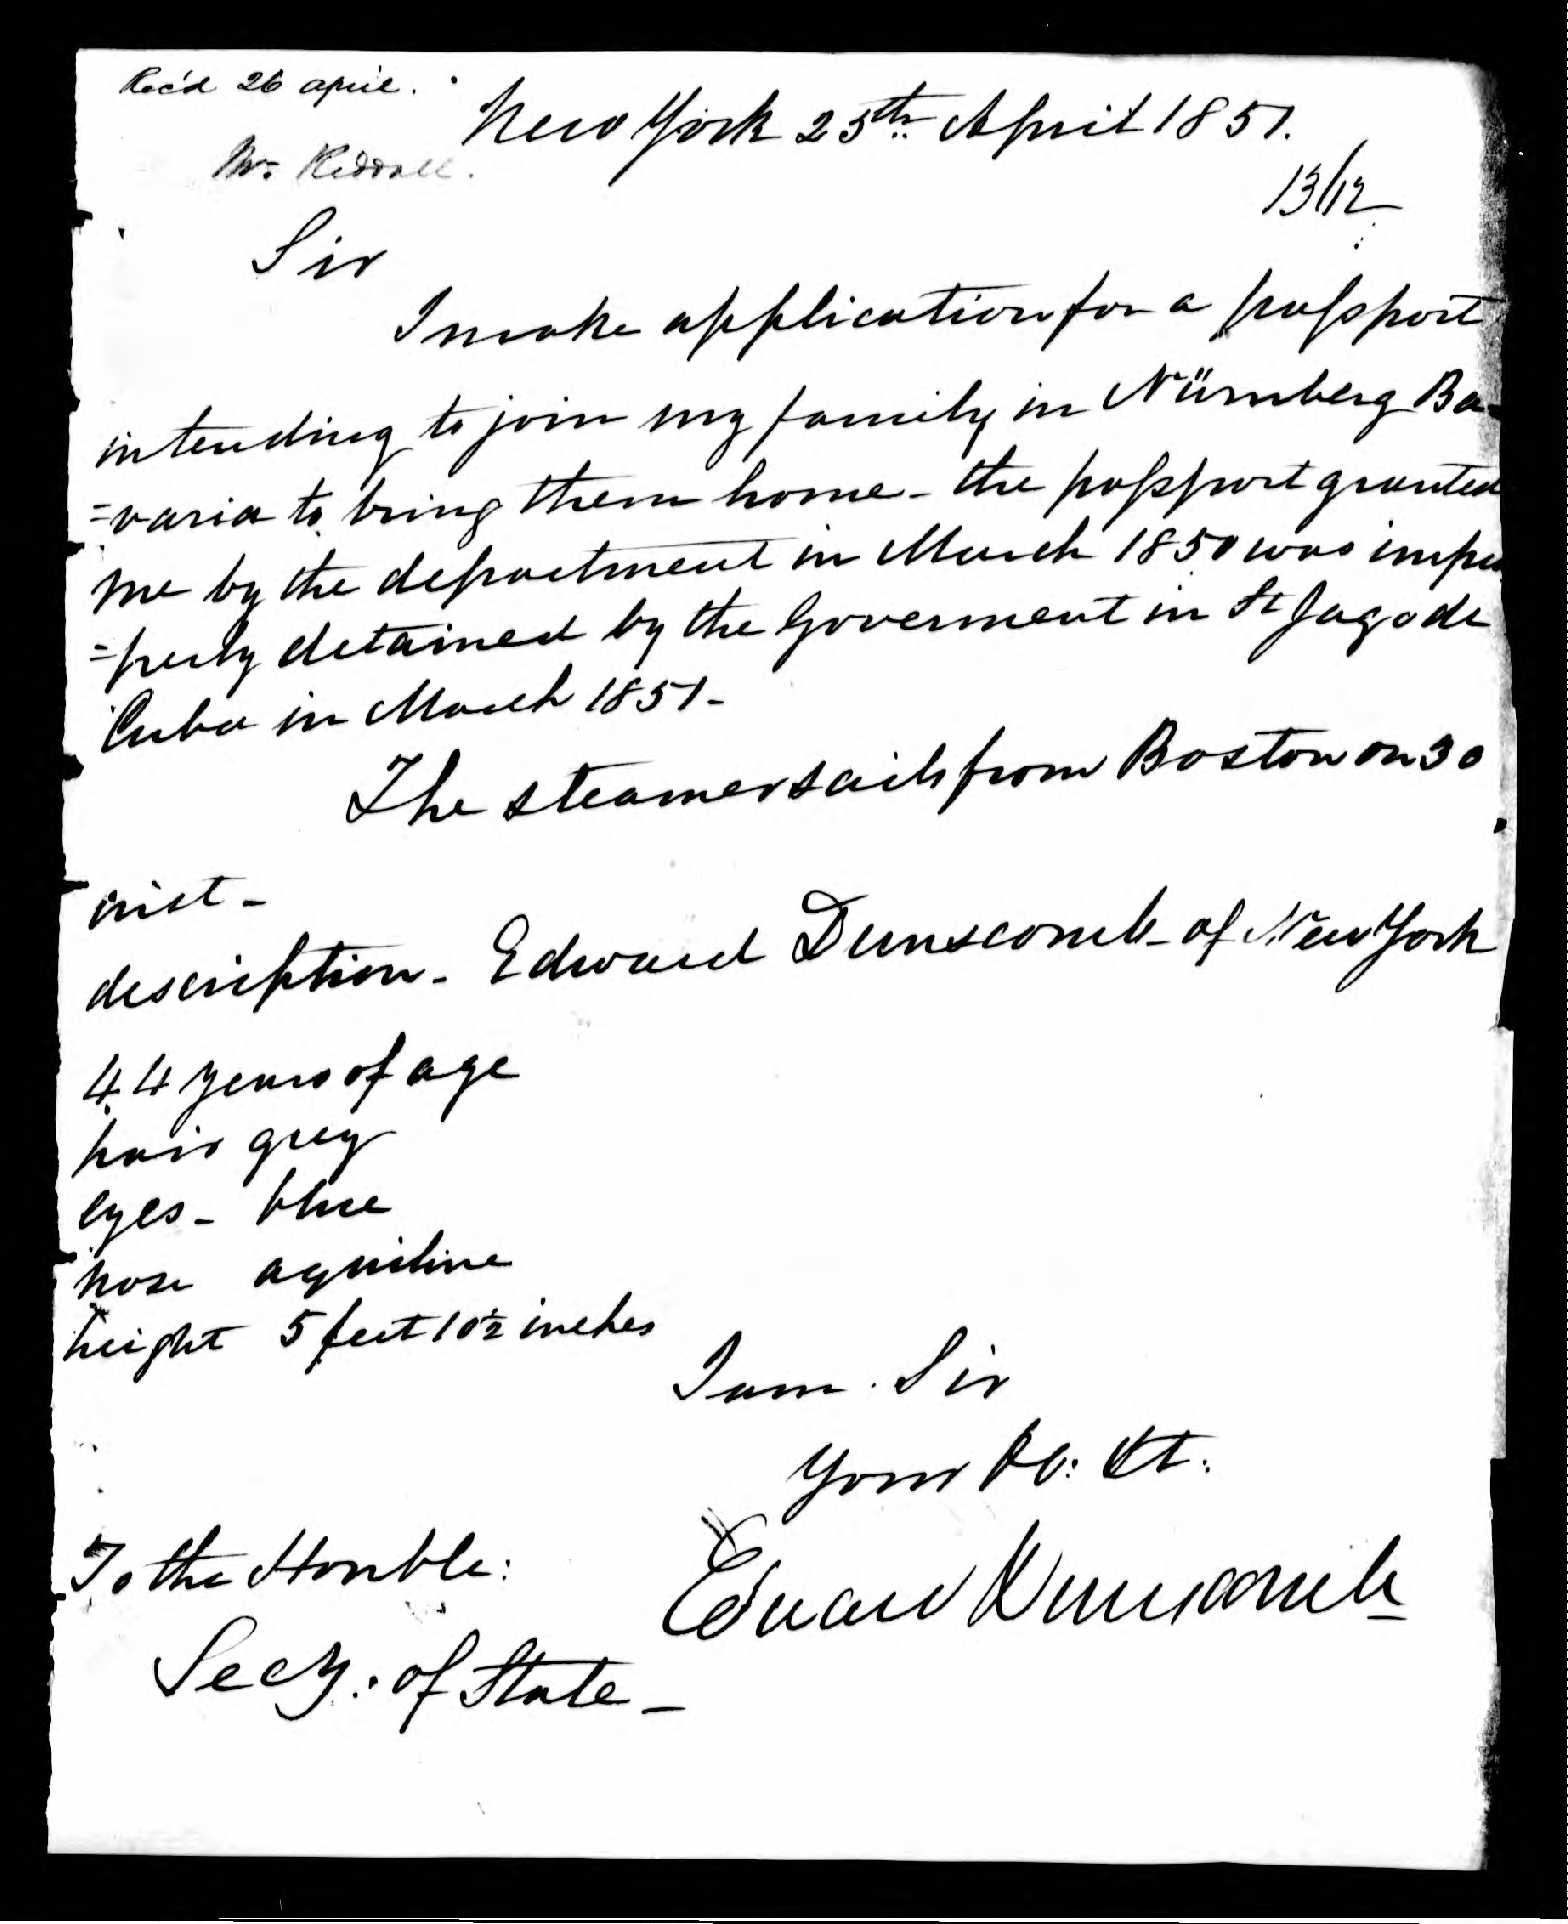 Rec'd 26 april.
New York 25th April 1851.
Mr.
13/12
Sir
I make application for a passport
intending to join my family in Nürnberg Ba-
=varia to bring them home - the passport granted
me by the department in March 1850 was impr
=perly detained by the Goverment in St Jago de
Cuba in March 1851 -
The steamer sails from Boston on 30
inst -
description - Edward Dunscomb - of New York
44 years of age
hair grey
eyes - blue
nose aquiline
height 5 feet 10½ inches
I am. Sir
Your Ob: St.
To the Honble:
Edward Dunscomb
Secy: of State -